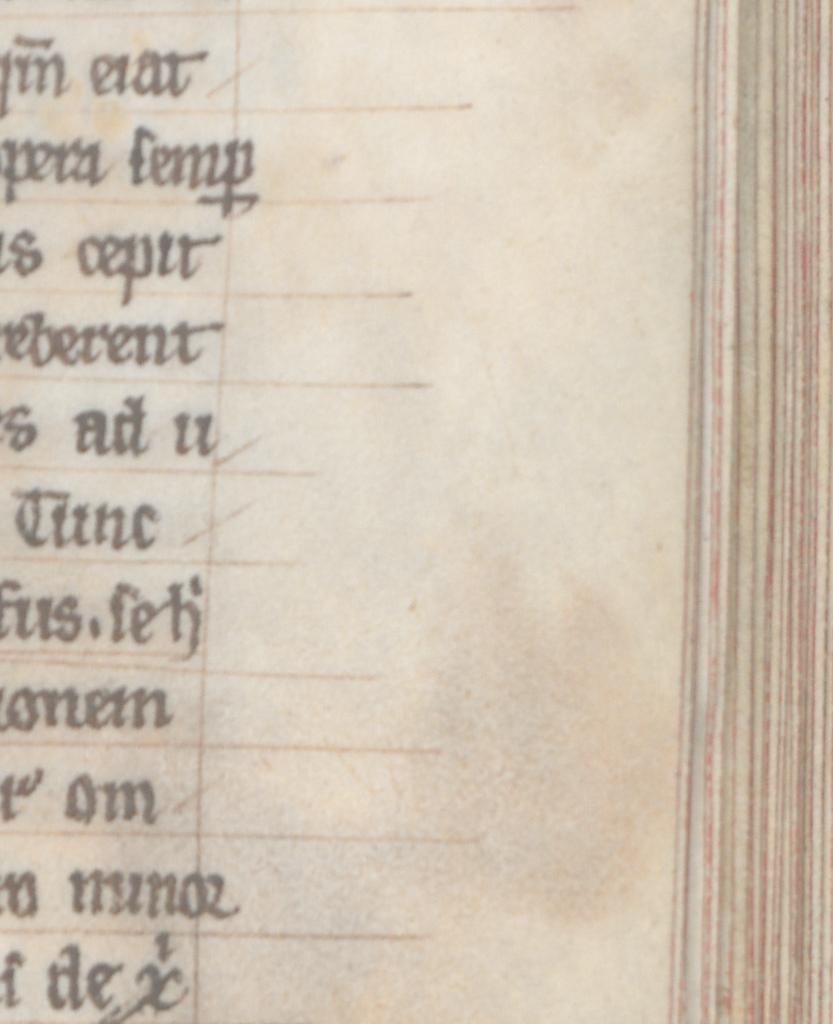 qm̄ erat
opera semꝑ
us cepit
reberent
es ad u
Tunc
fus. se
ionem
om
minor
de